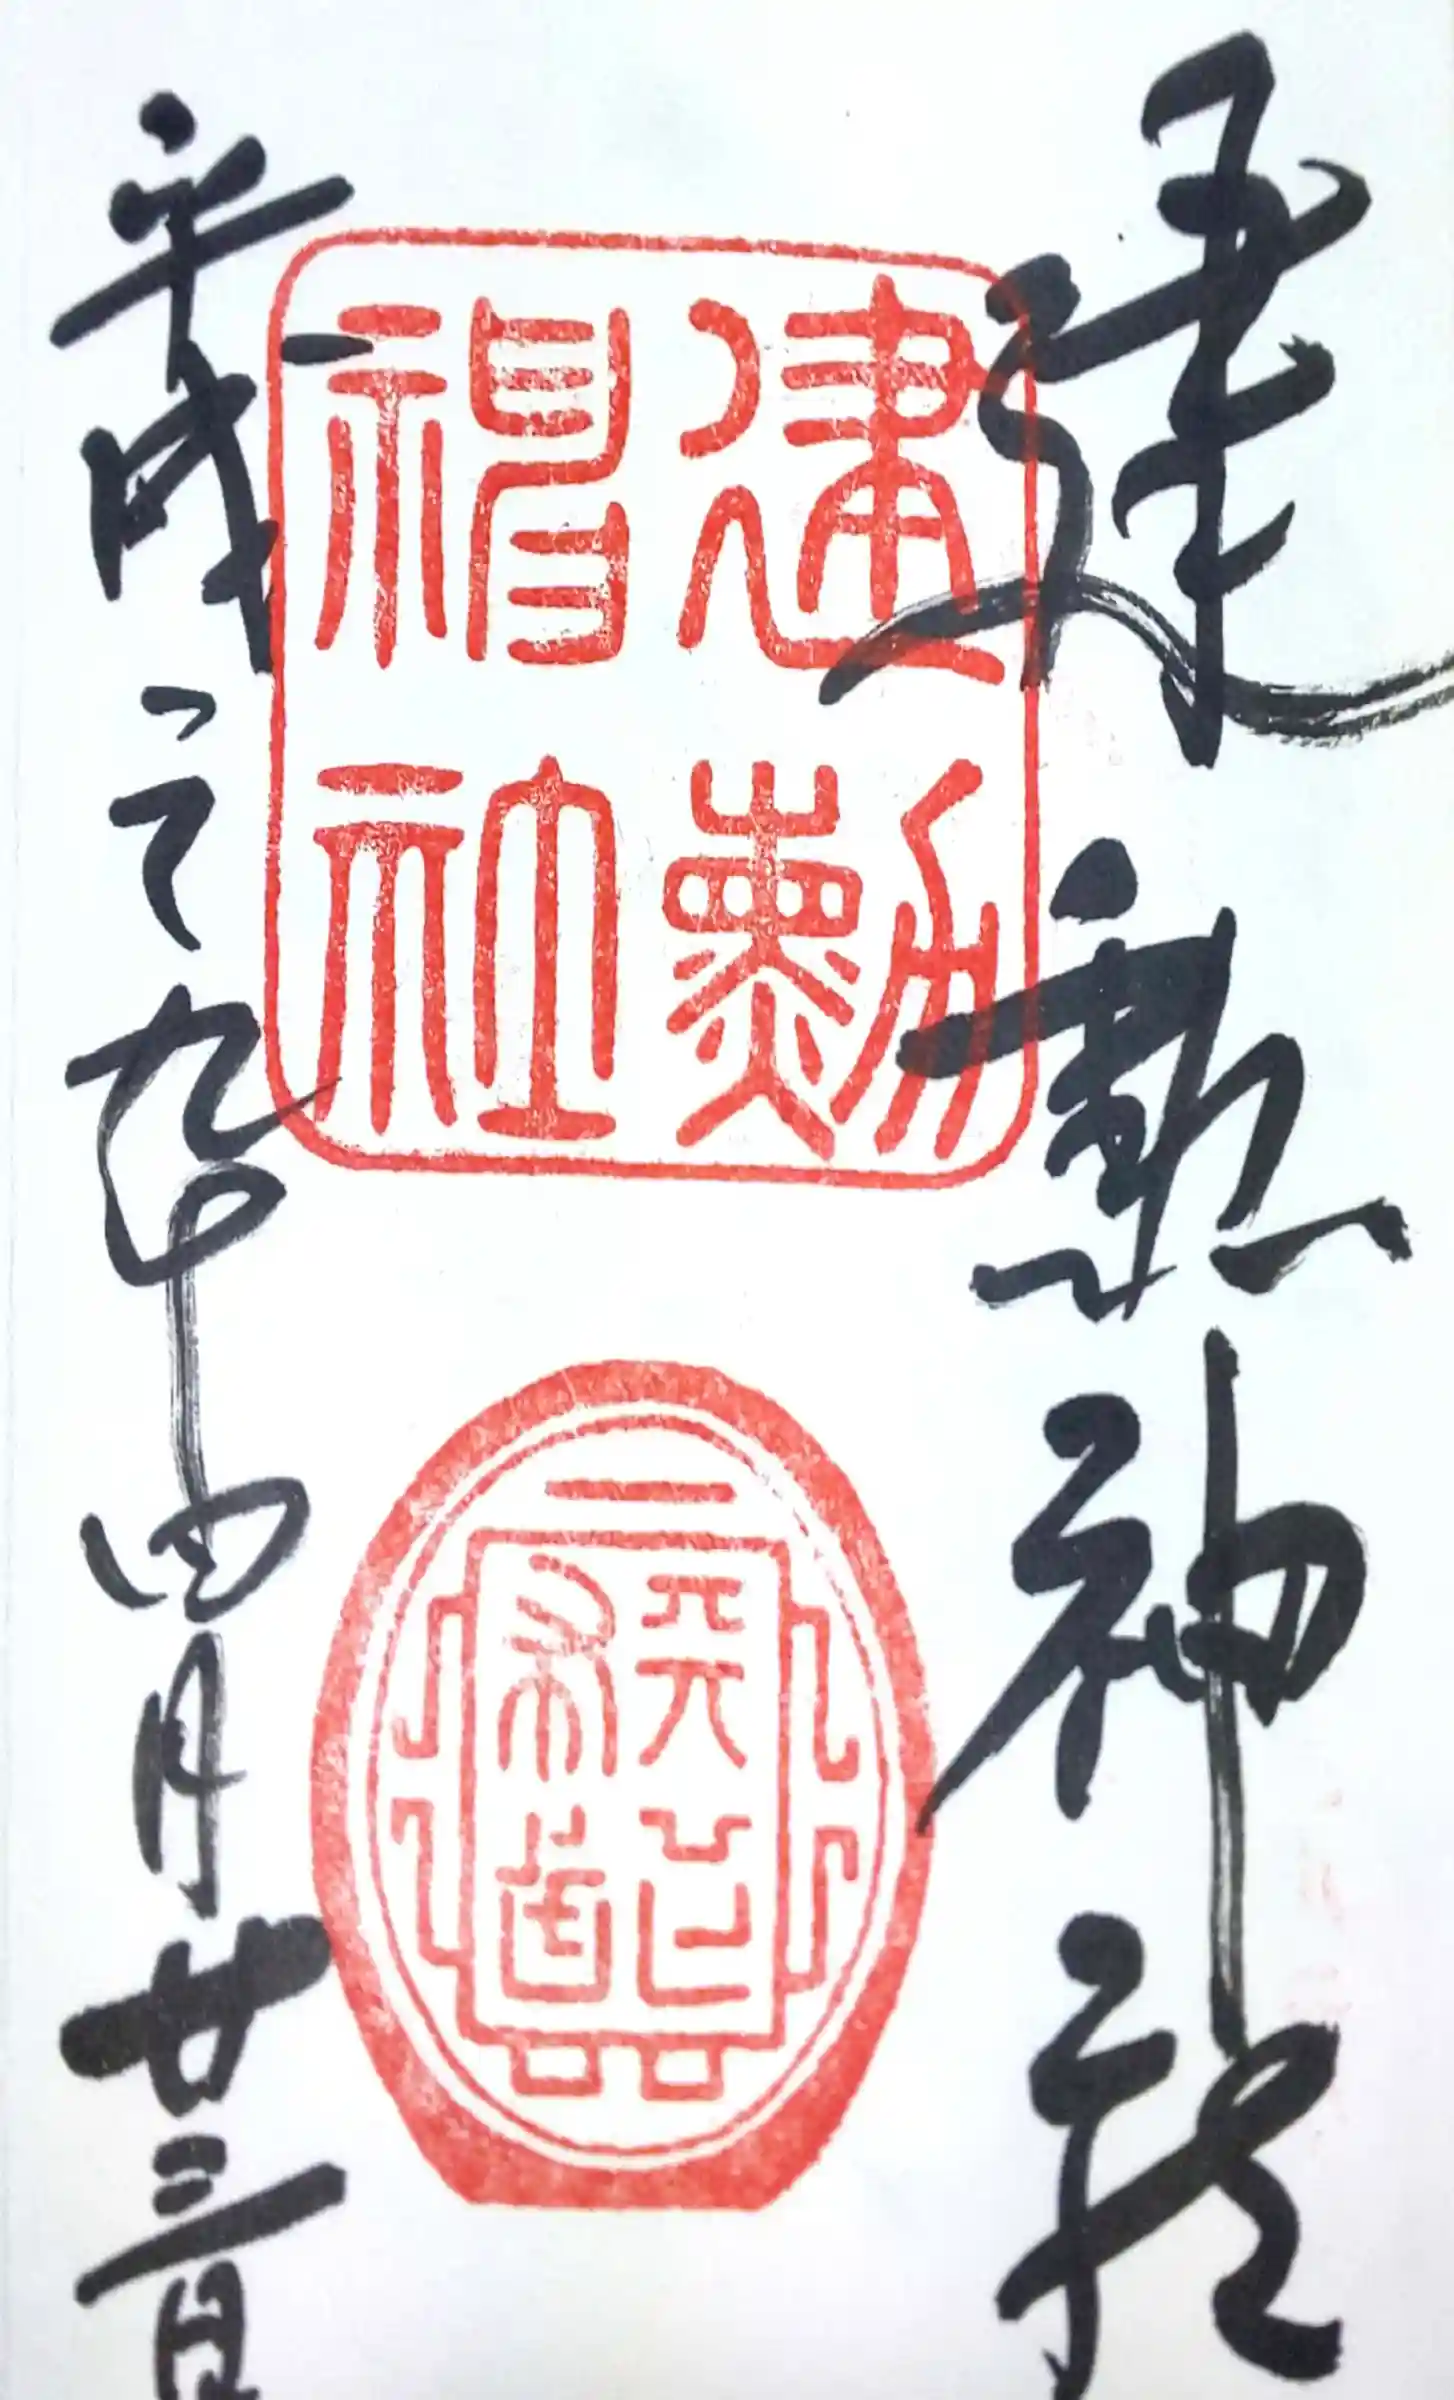 建勲神社
建勲
神社
平成二九年四月廿三日